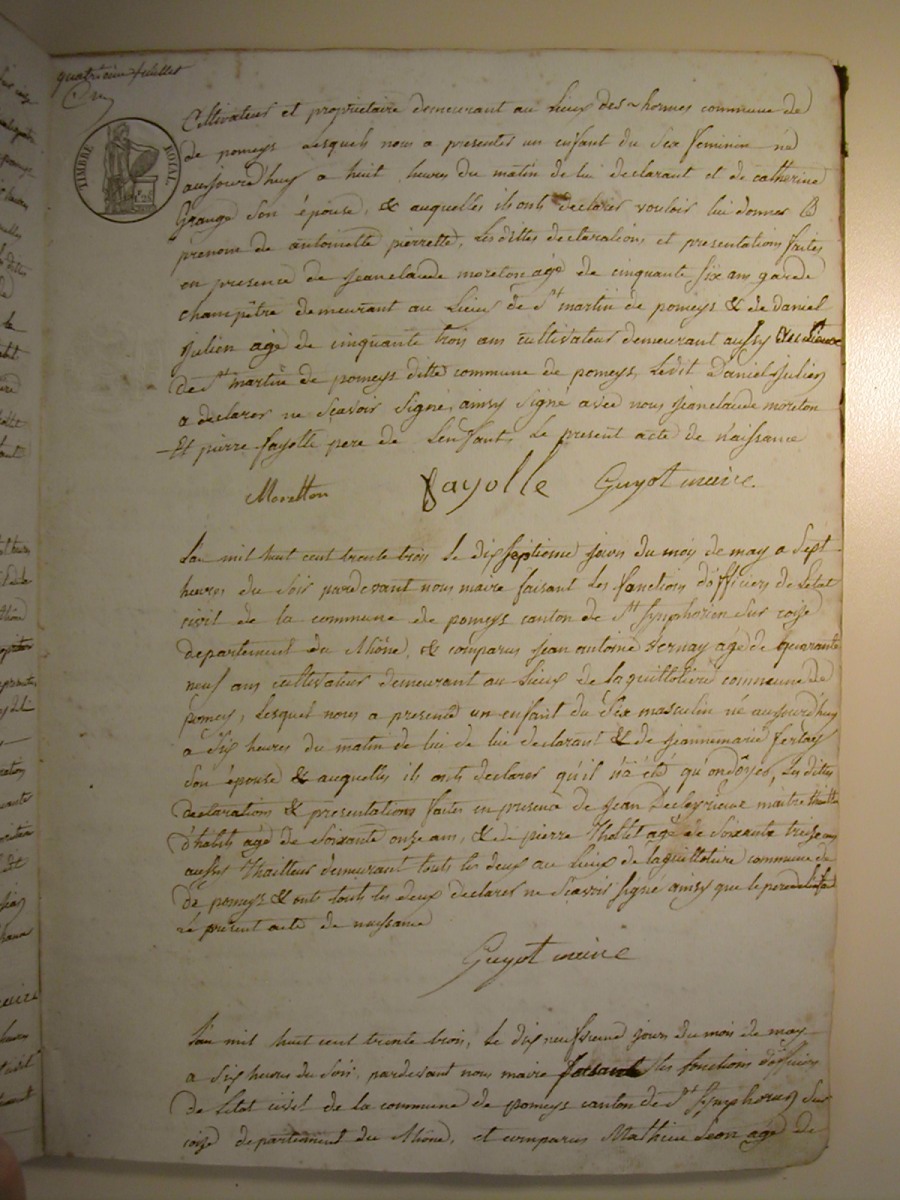 quatrieme feuillet
TIMBRE ROYAL
Cultivateur et proprietaire demeurant au Lieux des hormes commune de
de pomeys Lesquels nous a presenter un enfant du Sex feminin né
aujourd'huy a huit heures du matin de lui declarant et de catherine
Grange Son épouse, & auquelles ils onts declarer vouloir lui donner
prenom de antoinette pierrette, Les dittes declarations et presentations faites
en presence de Jeanclaude moreton agé de cinquante six ans garde
champêtre demeurant au Lieux de St martin de pomeys & de daniel
Julien agé de cinquante trois ans cultivateur demeurant aussy
de St martin de pomeys ditte commune de pomeys, Ledit Daniel Julien
a declarer ne Scavoir Signé, ainsy Signé avec nous Jeanclaude moreton
Et pierre fayolle pere de Lenfant, Le present acte de naissance
Moretton fayolle Guyot maire
L'an mil huit cent trente trois Le dix septieme jours du mois de may a Sept
heures du Soir pardevant nous maire faisant Les fonctions d'officiers de Letat
civil de la commune de pomeys canton de St Symphorien Sur coize
departement du Rhône, & comparus jean antoine Vernay agé de quarante
neuf ans cultivateur demeurant au Lieux de la quillotiere commune de
pomey, Lesquel nous a presenté un enfant du Sex masculin né aujourd'huy
a Six heures du matin de lui de lui declarant & de Jeannemarie ferlay
Son épouse & auquelles ils onts declarer qu'il n'a été qu'ondoyer, Les dittes
declarations & presentations faites en presence de Jean maitre
d'habits agé de Soixante onze ans, & de pierre Thollet agé de Soixante treize ans
aussy Thailleur demeurant touts les deux au Lieux de la quillotiere commune de
de pomeys & onts touts les deux declarer ne Scavoir Signé ainsy que le pere de l'enfant
Le present acte de naissance
Guyot maire
L'an mil huit cent trente trois, Le dix neufvieme jours du mois de may
a Six heures du Soir, pardevant nous maire faisant Les fonctions d'officiers
de Letat civil de la commune de pomeys canton de St Symphorien Sur
coize departement du Rhône, et comparus Mathieu Leon agé de